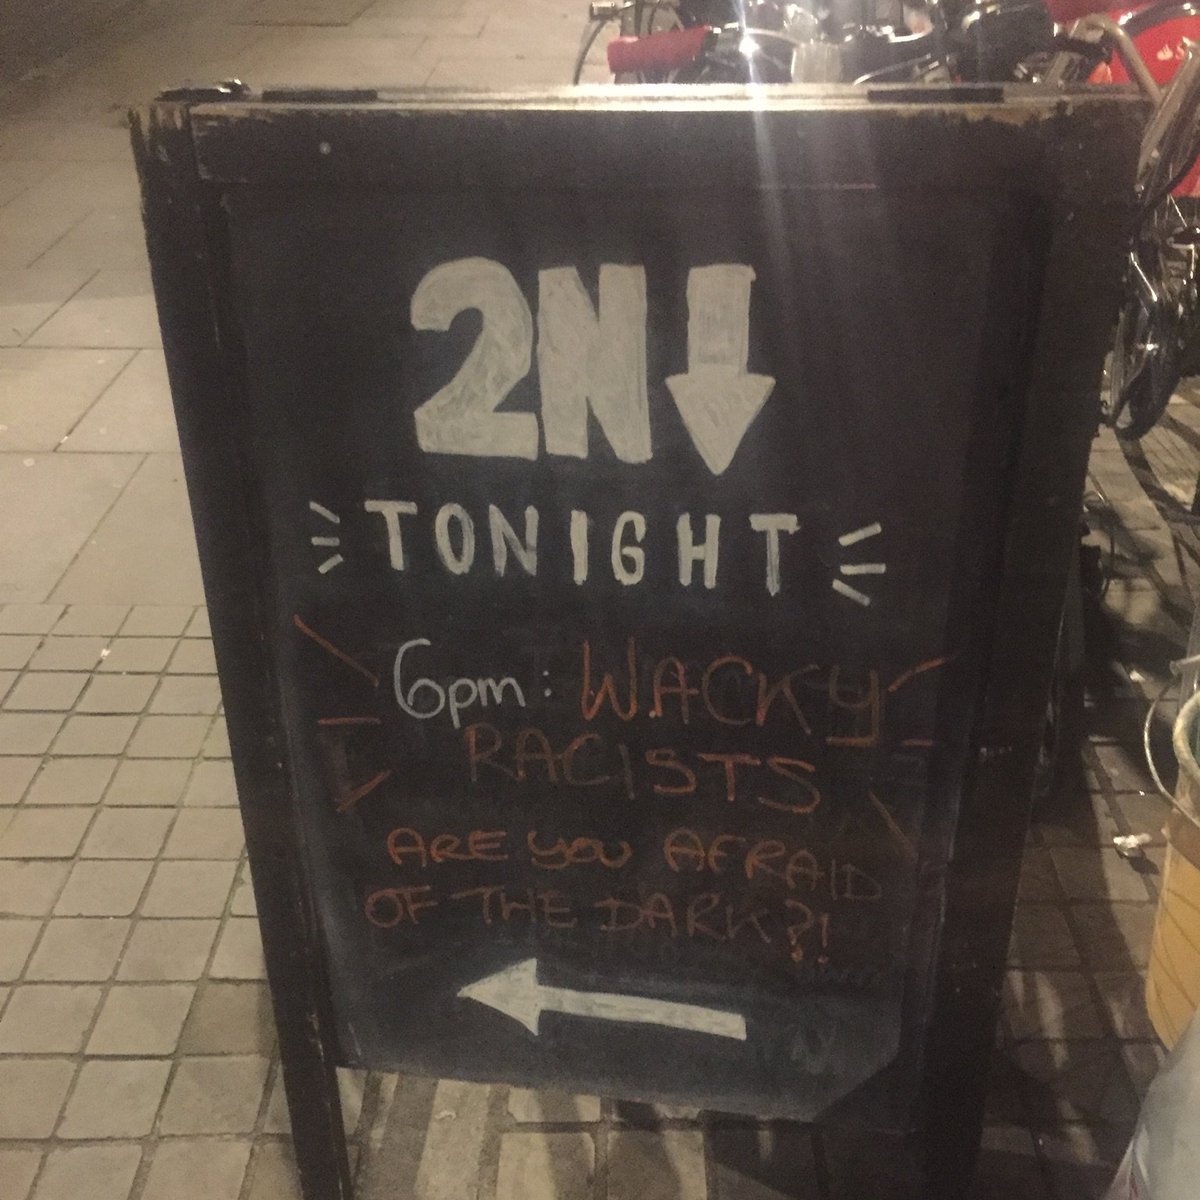 2N↓
TONIGHT
6pm: WACKY
RACISTS
ARE YOU AFRAID
OF THE DARK?!